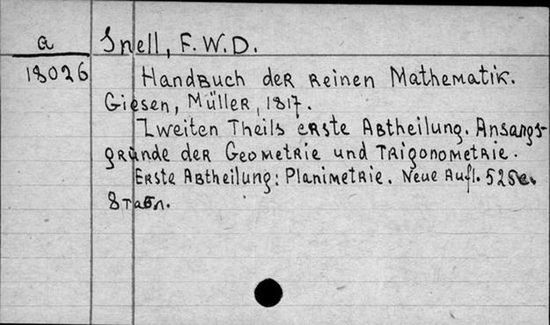 a
18026
Snell, F.W.D.
Handbuch der reinen Mathematik.
Giesen, Müller, 1817.
Zweiten Theils erste Abtheilung. Ansangs-
gründe der Geometrie und Trigonometrie.
Erste Abtheilung: Planimetrie. Neue Aufl. 525c.
8 табл.